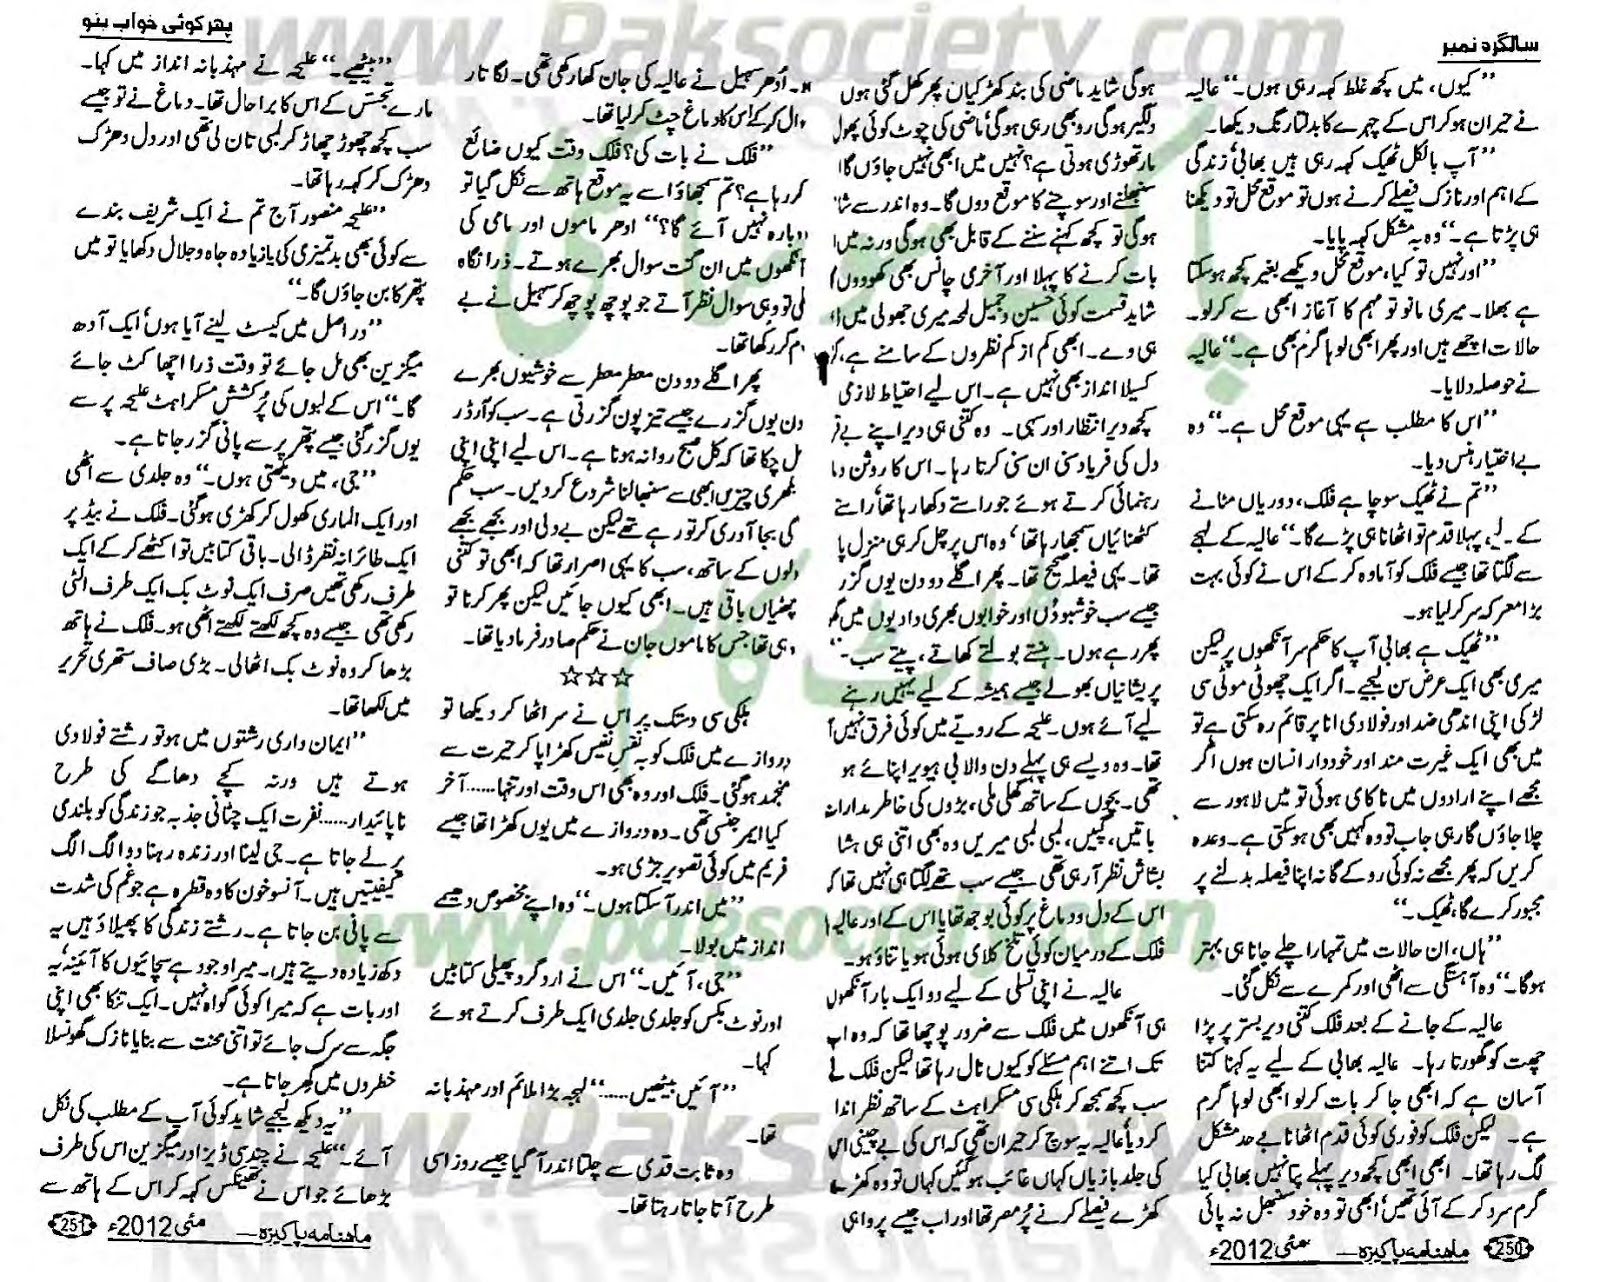 سالگرہ نمبر
”کیوں، میں کچھ غلط کہہ رہی ہوں۔“ عالیہ
نے حیران ہوکر اس کے چہرے کا بدلتا رنگ دیکھا۔
”آپ بالکل ٹھیک کہہ رہی ہیں بھابی‘ زندگی
کے اہم اور نازک فیصلے کرنے ہوں تو موقع محل تو دیکھنا
ہی پڑتا ہے۔“ وہ بہ مشکل کہہ پایا۔
”اور نہیں تو کیا، موقع محل دیکھے بغیر کچھ ہوسکتا
ہے بھلا۔ میری مانو تو مہم کا آغاز ابھی سے کرلو۔
حالات اچھے ہیں اور پھر ابھی لوہا گرم بھی ہے۔“ عالیہ
نے حوصلہ دلایا۔
”اس کا مطلب ہے یہی موقع محل ہے۔“ وہ
بے اختیار ہنس دیا۔
”تم نے ٹھیک سوچا ہے فلک، دوریاں مٹانے
کے لیے پہلا قدم تو اٹھانا ہی پڑے گا۔“ عالیہ کے لہجے
سے لگتا تھا جیسے فلک کو آمادہ کرکے اس نے کوئی بہت
بڑا معرکہ سر کرلیا ہو۔
”ٹھیک ہے بھابی آپ کا حکم سر آنکھوں پر لیکن
میری بھی ایک عرض سن لیجیے۔ اگر ایک چھوٹی موٹی سی
لڑکی اپنی اندھی ضد اور فولادی انا پر قائم رہ سکتی ہے تو
میں بھی ایک غیرت مند اور خوددار انسان ہوں اگر
مجھے اپنے ارادوں میں ناکامی ہوئی تو میں لاہور سے
چلا جاؤں گا رہی جاب تو وہ کہیں بھی ہوسکتی ہے۔ وعدہ
کریں کہ پھر مجھے نہ کوئی روکے گا نہ اپنا فیصلہ بدلنے پر
مجبور کرے گا، ٹھیک۔“
”ہاں، ان حالات میں تمہارا چلے جانا ہی بہتر
ہوگا۔“ وہ آہستگی سے اٹھی اور کمرے سے نکل گئی۔
عالیہ کے جانے کے بعد فلک کتنی دیر بستر پر پڑا
چھت کو گھورتا رہا۔ عالیہ بھابی کے لیے یہ کہنا کتنا
آسان ہے کہ ابھی جا کر بات کرلو ابھی لوہا گرم
ہے۔ لیکن فلک کو فوری کوئی قدم اٹھانا بے حد مشکل
لگ رہا تھا۔ ابھی ابھی کچھ دیر پہلے پتا نہیں بھابی کیا
گرم سرد کرکے آئی تھیں‘ ابھی تو وہ خود سنبھل نہ پائی
ہوگی شاید ماضی کی بند کھڑکیاں پھر کھل گئی ہوں
دلگیر ہوگی رو بھی رہی ہوگی‘ ماضی کی چوٹ کوئی پھول
مار تھوڑی ہوتی ہے؟ نہیں میں ابھی نہیں جاؤں گا
سنبھلنے اور سوچنے کا موقع دوں گا۔ وہ اندر سے
ہوگی تو کچھ کہنے سننے کے قابل بھی ہوگی ورنہ میں
بات کرنے کا پہلا اور آخری چانس بھی کھودوں
شاید قسمت کوئی حسین و جمیل لمحہ میری جھولی میں
ہی دے۔ ابھی کم از کم نظروں کے سامنے ہے،
کسیلا انداز بھی نہیں ہے۔ اس لیے احتیاط لازمی
کچھ دیر انتظار اور سہی۔ وہ کتنی ہی دیر اپنے
دل کی فریاد سنی ان سنی کرتا رہا۔ اس کا روشن
رہنمائی کرتے ہوئے جو راستے دکھا رہا تھا‘ راستے
کٹھنائیاں سمجھا رہا تھا‘ وہ اس پر چل کر ہی منزل
تھا۔ یہی فیصلہ صحیح تھا۔ پھر اگلے دو دن یوں گزر
جیسے سب خوشبوؤں اور خوابوں بھری وادیوں میں
پھر رہے ہوں۔ ہنستے بولتے کھاتے، پیتے سب۔“
پریشانیاں بھولے جیسے ہمیشہ کے لیے یہیں رہنے
لیے آئے ہوں۔ علیحہ کے رویے میں کوئی فرق نہیں
تھا۔ وہ ویسے ہی پہلے دن والا بی ہیویر اپنائے ہو
تھی۔ بچوں کے ساتھ کھلی ملی، بڑوں کی خاطر مدارات
باتیں، گپیں، لمبی لمبی سیریں وہ بھی اتنی ہی ہشاش
بشاش نظر آرہی تھی جیسے سب تھے لگتا ہی نہیں تھا کہ
اس کے دل و دماغ پر کوئی بوجھ تھا یا اس کے اور عالیہ
فلک کے درمیان کوئی تلخ کلامی ہوئی ہو یا تناؤ ہو۔
عالیہ نے اپنی تسلی کے لیے دو ایک بار آنکھوں
ہی آنکھوں میں فلک سے ضرور پوچھا تھا کہ وہ اب
تک اتنے اہم مسئلے کو کیوں ٹال رہا تھا لیکن فلک نے
سب کچھ سمجھ کر ہلکی سی مسکراہٹ کے ساتھ نظر انداز
کردیا‘ عالیہ یہ سوچ کر حیران تھی کہ اس کی بے چینی اس
کی جلد بازیاں کہاں غائب ہوگئیں کہاں تو وہ کھڑے
کھڑے فیصلے کرنے پُر مصر تھا اور اب جیسے پروا ہی
250 ماهنامه پاکیزہ— مئی 2012ء
پھر کوئی خواب بنو
اُدھر سہیل نے عالیہ کی جان کھا رکھی تھی۔ لگا تار
سوال کرکے اس کا دماغ چٹ کرلیا تھا۔
”فلک نے بات کی؟ فلک وقت کیوں ضائع
کررہا ہے؟ تم سمجھاؤ اسے یہ موقع ہاتھ سے نکل گیا تو
دوبارہ نہیں آئے گا؟“ ادھر ماموں اور مامی کی
آنکھوں میں ان گنت سوال بھرے ہوتے۔ ذرا نگاہ
ملی تو وہی سوال نظر آتے جو پوچھ پوچھ کر سہیل نے بے
دم کر رکھا تھا۔
پھر اگلے دو دن معطر معطر سے خوشیوں بھرے
دن یوں گزرے جیسے تیز پون گزرتی ہے۔ سب کو آرڈر
مل چکا تھا کہ کل صبح روانہ ہونا ہے۔ اس لیے اپنی اپنی
بکھری چیزیں ابھی سے سنبھالنا شروع کردیں۔ سب حکم
کی بجا آوری کر تو رہے تھے لیکن بے دلی اور بجھے بجھے
دلوں کے ساتھ، سب کا یہی اصرار تھا کہ ابھی تو کتنی
چھٹیاں باقی ہیں۔ ابھی کیوں جائیں لیکن پھر کرنا تو
وہی تھا جس کا ماموں جان نے حکم صادر فرمادیا تھا۔
☆☆☆
ہلکی سی دستک پر اس نے سر اٹھا کر دیکھا تو
دروازے میں فلک کو بہ نفسِ نفیس کھڑا پا کر حیرت سے
منجمد ہوگئی۔ فلک اور وہ بھی اس وقت اور تنہا...... آخر
کیا ایمرجنسی تھی۔ وہ دروازے میں یوں کھڑا تھا جیسے
فریم میں کوئی تصویر جڑی ہو۔
”میں اندر آسکتا ہوں۔“ وہ اپنے مخصوص دھیمے
انداز میں بولا۔
”جی، آئیں۔“ اس نے اردگرد پھیلی کتابیں
اور نوٹ بکس کو جلدی جلدی ایک طرف کرتے ہوئے
کہا۔
”آئیں بیٹھیں......“ لہجہ بڑا ملائم اور مہذبانہ
تھا۔
وہ ثابت قدمی سے چلتا اندر آگیا جیسے روز اسی
طرح آتا جاتا رہتا تھا۔
”بیٹھیے۔“ علیحہ نے مہذبانہ انداز میں کہا۔
مارے تجسّس کے اس کا برا حال تھا۔ دماغ نے تو جیسے
سب کچھ چھوڑ چھاڑ کر لمبی تان لی تھی اور دل دھڑک
دھڑک کر کہہ رہا تھا۔
”علیحہ منصور آج تم نے ایک شریف بندے
سے کوئی بھی بدتمیزی کی یا زیادہ جاہ و جلال دکھایا تو میں
پتھر کا بن جاؤں گا۔“
”دراصل میں کیسٹ لینے آیا ہوں‘ ایک آدھ
میگزین بھی مل جائے تو وقت ذرا اچھا کٹ جائے
گا۔“ اس کے لبوں کی پُرکشش مسکراہٹ علیحہ پر سے
یوں گزر گئی جیسے پتھر پر سے پانی گزر جاتا ہے۔
”جی، میں دیکھتی ہوں۔“ وہ جلدی سے اٹھی
اور ایک الماری کھول کر کھڑی ہوگئی۔ فلک نے بیڈ پر
ایک طائرانہ نظر ڈالی۔ باقی کتابیں تو اکٹھے کرکے ایک
طرف رکھی تھیں صرف ایک نوٹ بک ایک طرف الٹی
رکھی تھی جیسے وہ کچھ لکھتے لکھتے اٹھی ہو۔ فلک نے ہاتھ
بڑھا کر وہ نوٹ بک اٹھالی۔ بڑی صاف ستھری تحریر
میں لکھا تھا۔
”ایمان داری رشتوں میں ہو تو رشتے فولادی
ہوتے ہیں ورنہ کچے دھاگے کی طرح
ناپائیدار...... نفرت ایک چٹانی جذبہ جو زندگی کو بلندی
پر لے جاتا ہے۔ جی لینا اور زندہ رہنا دو الگ الگ
کیفیتیں ہیں۔ آنسو خون کا وہ قطرہ ہے جو غم کی شدت
سے پانی بن جاتا ہے۔ رشتے زندگی کا پھیلاؤ ہیں یہ
دکھ زیادہ دیتے ہیں۔ میرا وجود ہے سچائیوں کا آئینہ‘ یہ
اور بات ہے کہ میرا کوئی گواہ نہیں۔ ایک تنکا بھی اپنی
جگہ سے سرک جائے تو اتنی محنت سے بنایا نازک گھونسلا
خطروں میں گھر جاتا ہے۔
”یہ دیکھ لیجیے شاید کوئی آپ کے مطلب کی نکل
آئے۔“ علیحہ نے چند سی ڈیز اور میگزین اس کی طرف
بڑھائے جو اس نے تھینکس کہہ کر اس کے ہاتھ سے
ماهنامه پاکیزہ— مئی 2012ء 251
www.Paksociety.com
پاک سوسائٹی
ڈاٹ کام
www.paksociety.com
www.Paksociety.com